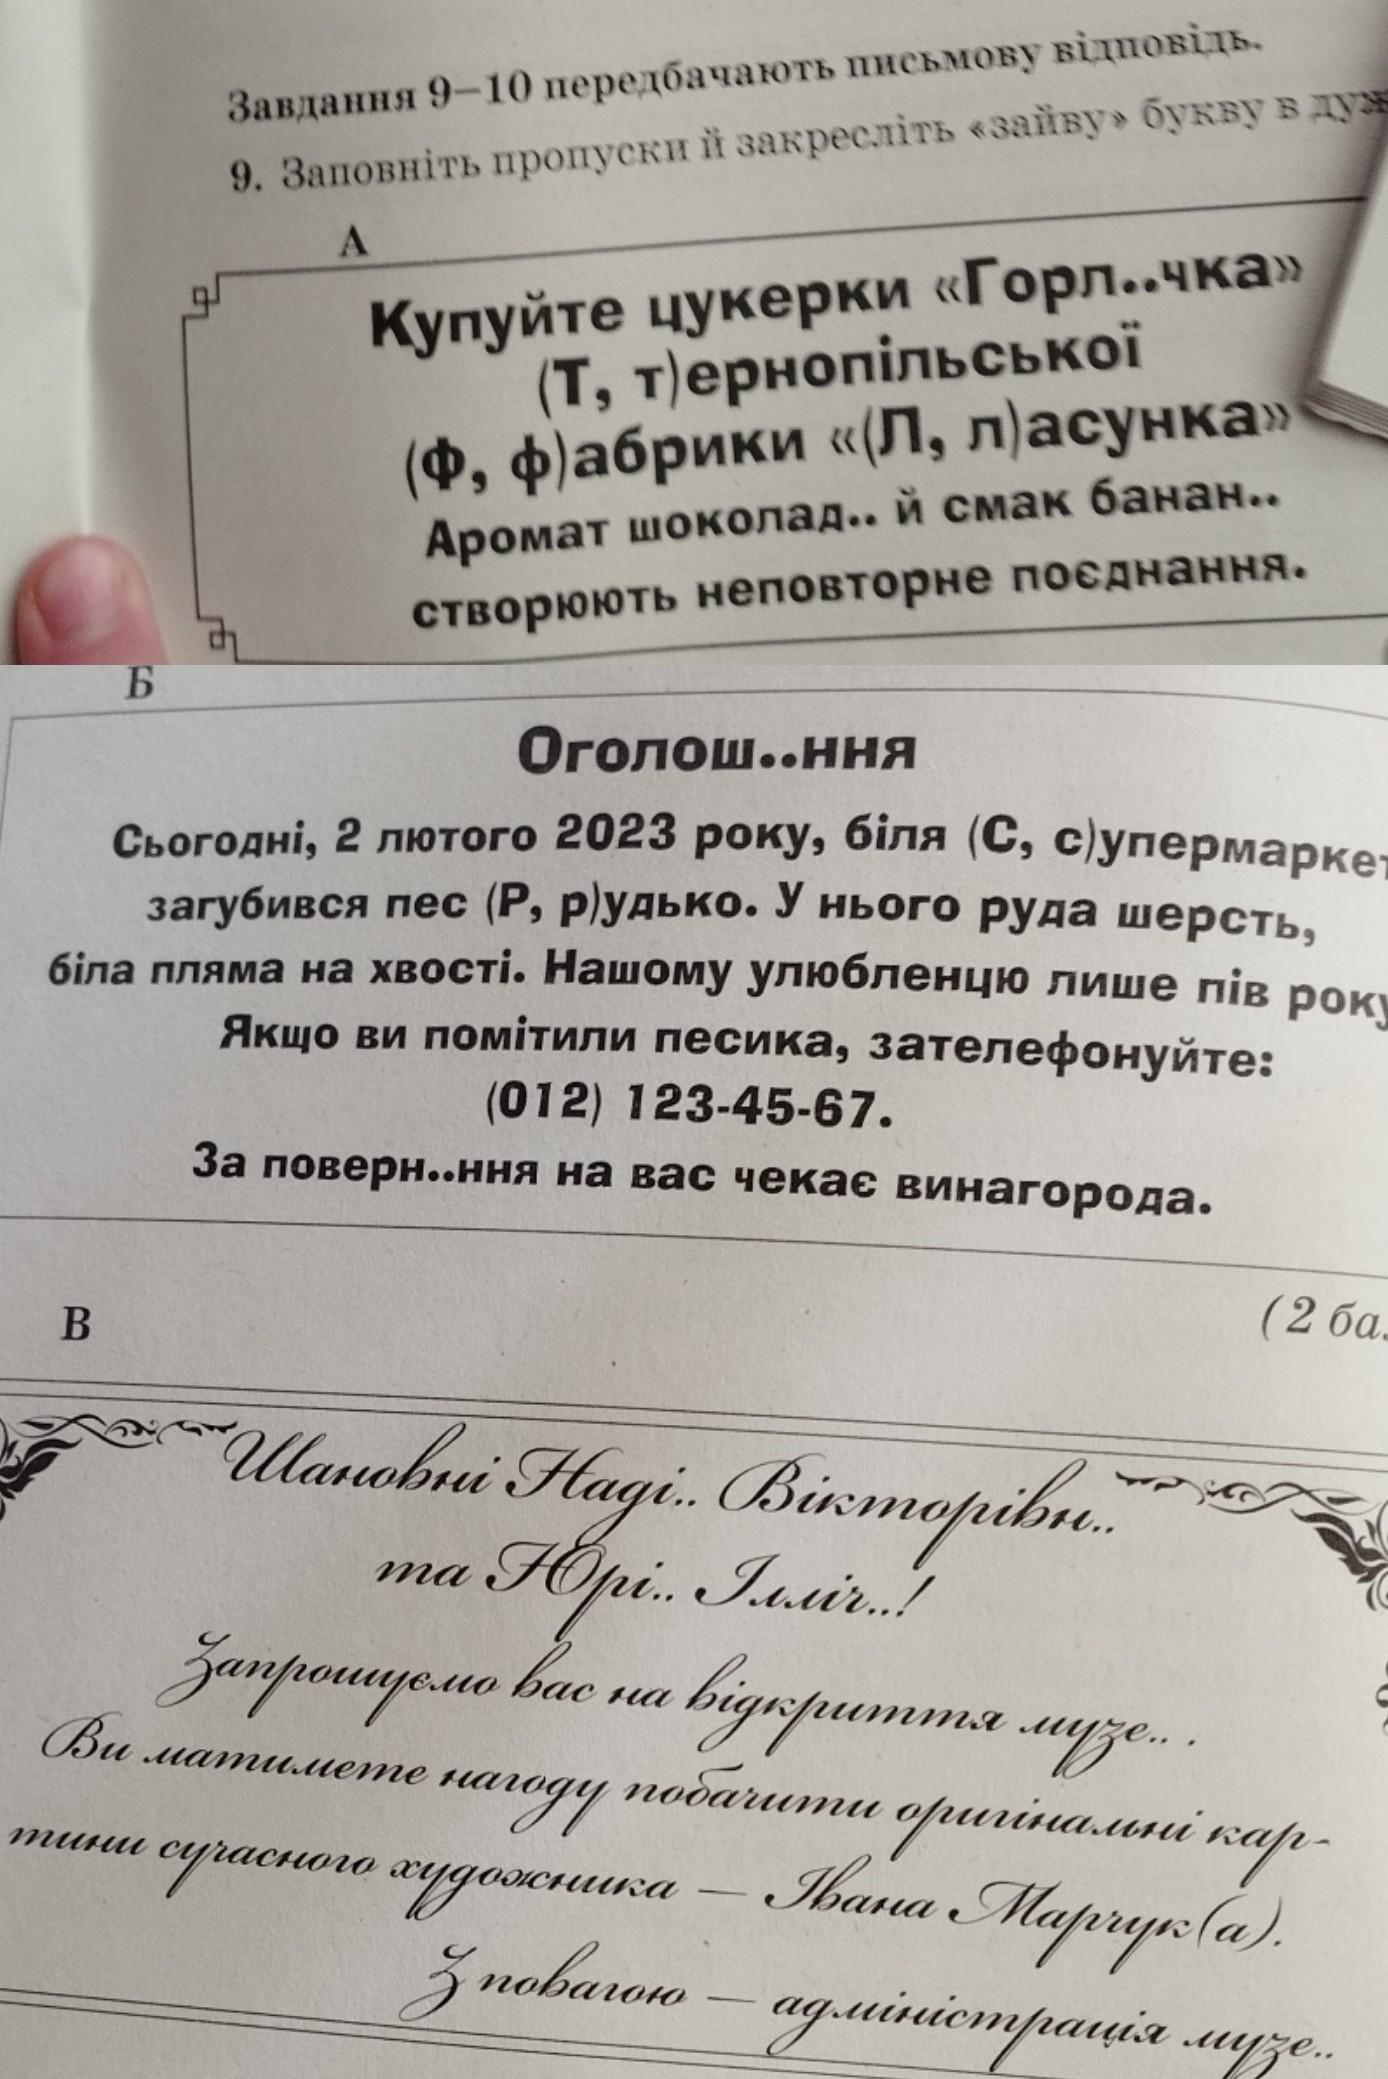 Завдання 9–10 передбачають письмову відповідь.
9. Заповніть пропуски й закресліть «зайву» букву в дуж
А
Купуйте цукерки «Горл..чка»
(Т, т)ернопільської
(Ф, ф)абрики «(Л, л)асунка»
Аромат шоколад.. й смак банан..
створюють неповторне поєднання.
Б
Оголош..ння
Сьогодні, 2 лютого 2023 року, біля (С, с)упермаркет
загубився пес (Р, р)удько. У нього руда шерсть,
біла пляма на хвості. Нашому улюбленцю лише пів року
Якщо ви помітили песика, зателефонуйте:
(012) 123-45-67.
За поверн..ння на вас чекає винагорода.
(2 ба.
В
Шановні Наді.. Вікторівн..
та Юрі.. Ілліч..!
Запрошуємо вас на відкриття музе.. .
Ви матимете нагоду побачити оригінальні кар-
тини сучасного художника — Івана Марчук(а).
З повагою — адміністрація музе..